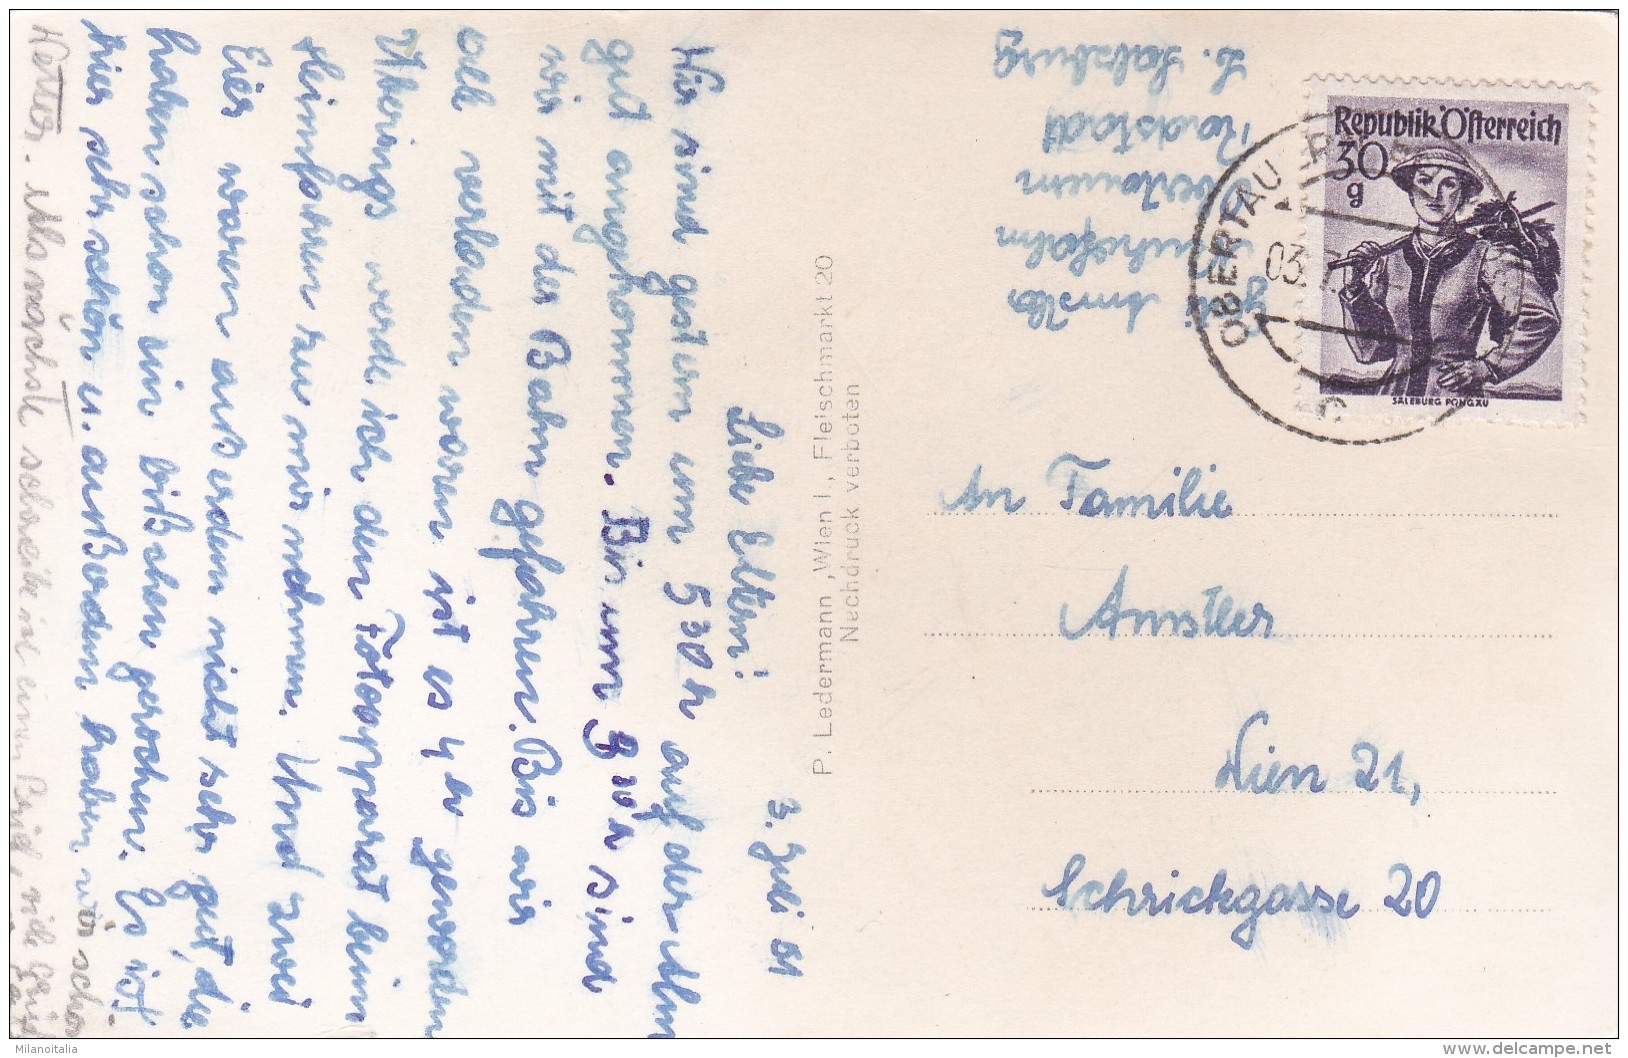 3. Juli 51
Liebe Eltern!
Wir sind gestern um 5 30 h auf der Alm
gut angekommen. Bis um 3 30 h sind
wir mit der Bahn gefahren. Bis wir
alle verladen waren ist es 4 h geworden
Übrings werde ich den Fotoapparat beim
Heimfahren zu mir nehmen. Und zwei
Eier waren außerdem nicht sehr gut, die
haben schon ein bißchen gerochen. Es ist
hier sehr schön u. außerdem haben wir schon
Wetter. Als nächste schreibe ich einen Brief, viele
P. Ledermann, Wien I., Fleischmarkt 20
Nachdruck verboten
Amstler
Obertauern
Radstadt
L. Salzburg
Republik Österreich
30
g
SALZBURG PONGAU
OBERTAU
03
C
An Familie
Amstler
Wien 21,
Schrickgasse 20
Milanoitalia
delcampe.net